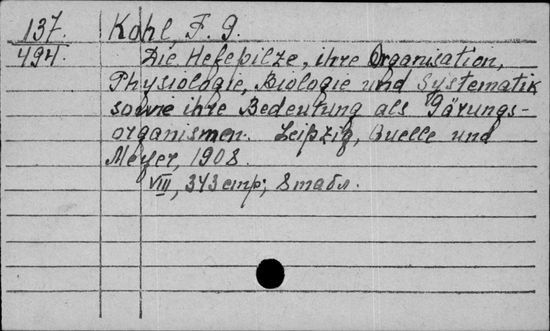 137. Kohl, F. G.
494. Die Hefepilze, ihre Organisation,
Physiologie, Biologie und Systematik
sowie ihre Bedeutung als Gärungs-
organismen. Leipzig, Quelle und
Meyer, 1908.
VIII, 343 стр; 8 табл.